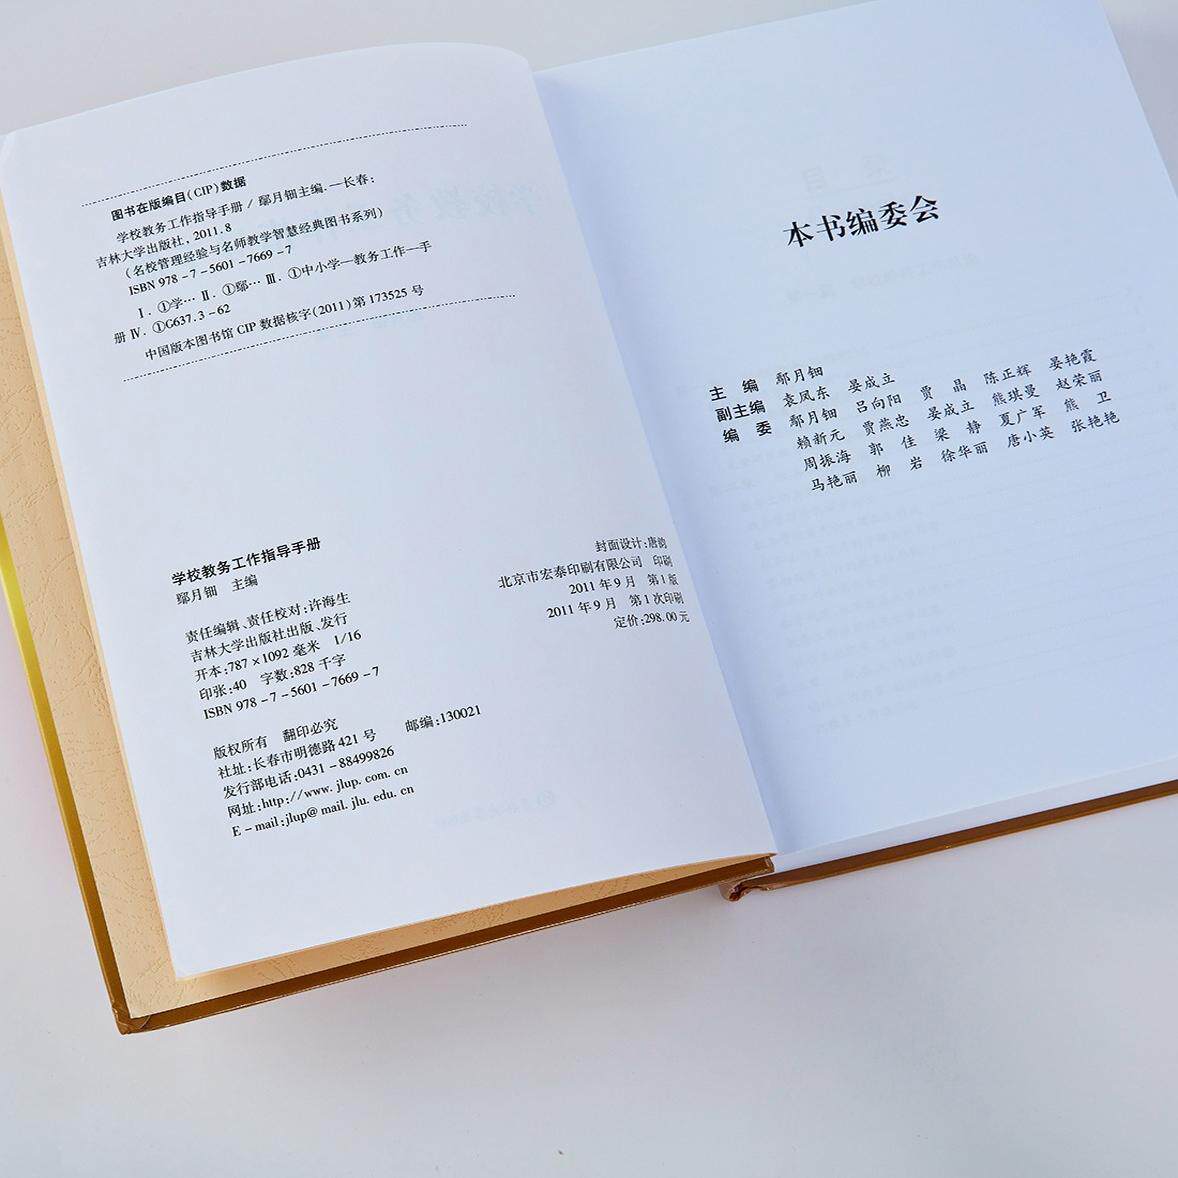 图书在版编目(CIP)数据
学校教务工作指导手册 / 鄢月钿主编.—长春:
吉林大学出版社, 2011.8
(名校管理经验与名师教学智慧经典图书系列)
ISBN 978-7-5601-7669-7
Ⅰ. ①学… Ⅱ. ①鄢… Ⅲ. ①中小学—教务工作—手
册 Ⅳ. ①G637.3-62
中国版本图书馆 CIP 数据核字(2011)第 173525 号
学校教务工作指导手册
鄢月钿 主编
责任编辑、责任校对:许海生
吉林大学出版社出版、发行
开本:787×1092 毫米 1/16
印张:40 字数:828 千字
ISBN 978-7-5601-7669-7
封面设计:唐韵
北京市宏泰印刷有限公司 印刷
2011年9月 第1版
2011年9月 第1次印刷
定价:298.00元
版权所有 翻印必究
社址:长春市明德路 421 号 邮编:130021
发行部电话:0431-88499826
网址:http://www.jlup.com.cn
E-mail:jlup@mail.jlu.edu.cn
本书编委会
主 编 鄢月钿
副主编 袁凤东 晏成立
编 委 鄢月钿 吕向阳 贾 晶 陈正辉 晏艳霞
赖新元 贾燕忠 晏成立 熊琪曼 赵荣丽
周振海 郭 佳 梁 静 夏广军 熊 卫
马艳丽 柳 岩 徐华丽 唐小英 张艳艳